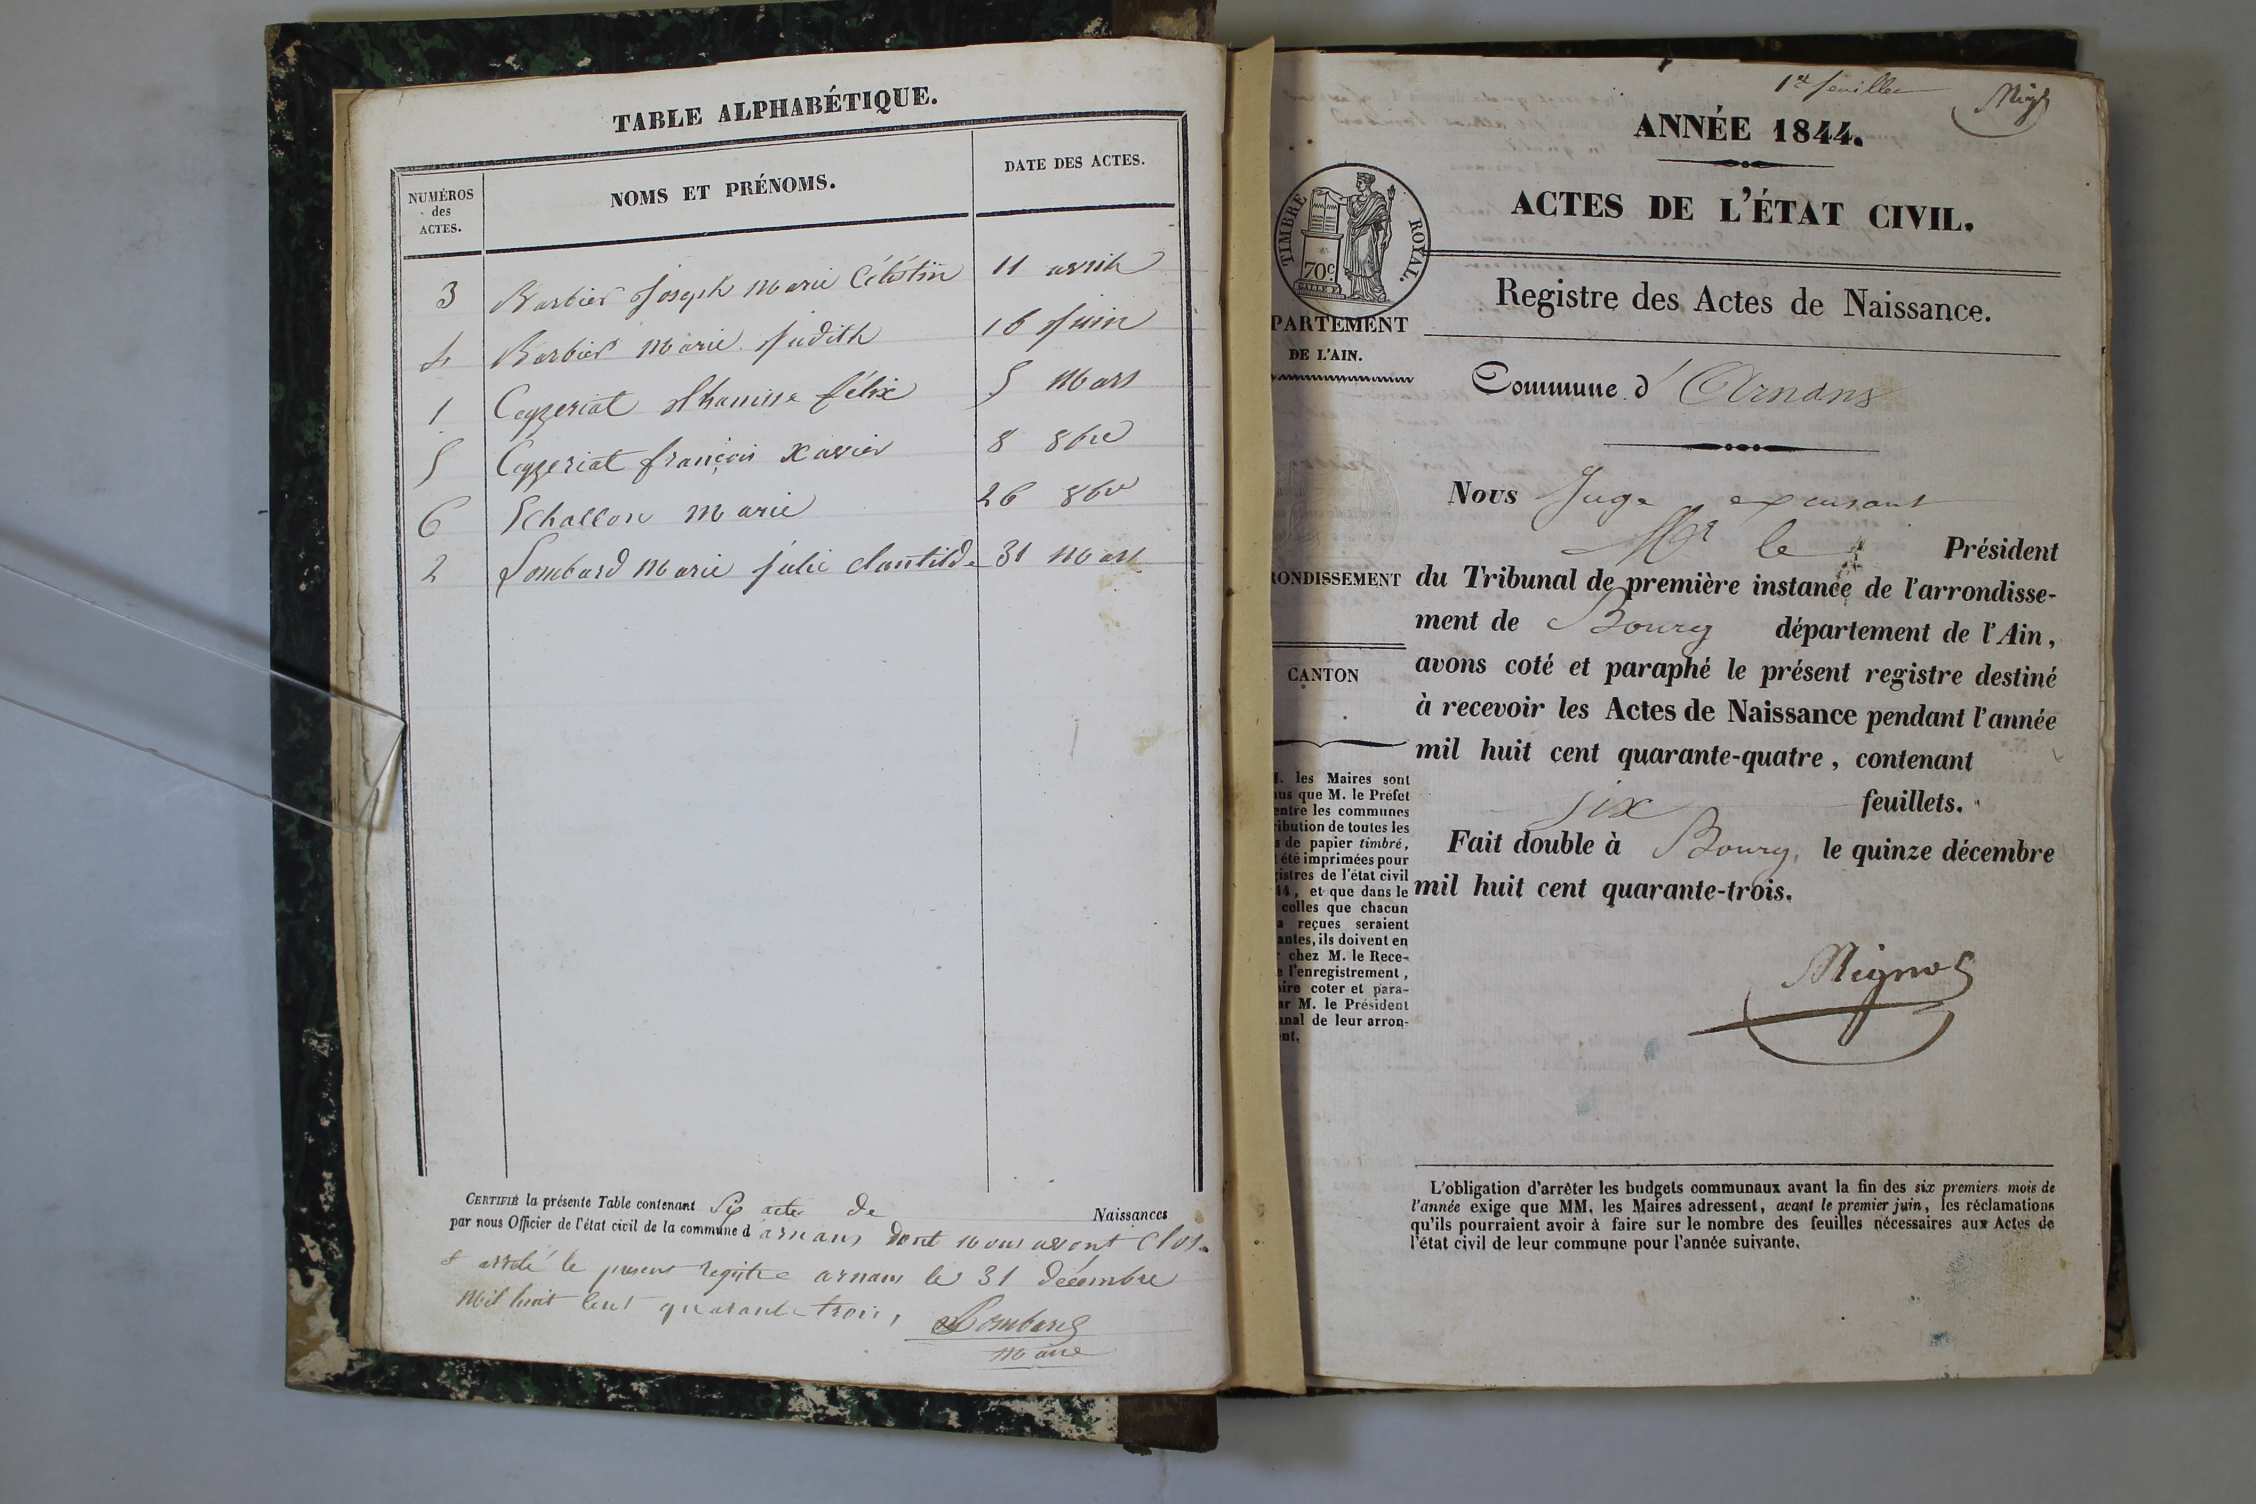 TABLE ALPHABÉTIQUE.
NUMÉROS
des
ACTES.
NOMS ET PRÉNOMS.
DATE DES ACTES.
3 Barbier Joseph Marie Célestin 11 avril
4 Barbier Marie Judith 16 Juin
1 Ceyzeriat félix 5 Mars
5 Ceyzeriat françois Xavier 8 8bre
6 Echallon Marie 26 8bre
2 Lombard Marie julie clantilde 31 Mars
CERTIFIÉ la présente Table contenant Six actes de Naissances
par nous Officier de l'état civil de la commune d'arnans dont nous avons Clos
& arrêté le présent registre arnans le 31 décembre
Mil huit Cent quarante trois,
Lombard
Maire
1er feuillet
ANNÉE 1844.
ACTES DE L'ÉTAT CIVIL.
TIMBRE ROYAL.
70c.
Registre des Actes de Naissance.
PARTEMENT
DE L'AIN.
Commune d'Arnans
Nous Juge excusant
Mr le Président
RONDISSEMENT
du Tribunal de première instance de l'arrondisse-
ment de Bourg département de l'Ain,
CANTON
avons coté et paraphé le présent registre destiné
à recevoir les Actes de Naissance pendant l'année
mil huit cent quarante-quatre, contenant
six feuillets.
Fait double à Bourg, le quinze décembre
mil huit cent quarante-trois.
M. les Maires sont
que M. le Préfet
entre les communes
ribution de toutes les
de papier timbré,
été imprimées pour
gistres de l'état civil
44, et que dans le
celles que chacun
a reçues seraient
antes, ils doivent en
r chez M. le Rece-
e l'enregistrement,
aire coter et para-
ar M. le Président
unal de leur arron-
ent.
Mignot
L'obligation d'arrêter les budgets communaux avant la fin des six premiers mois de
l'année exige que MM. les Maires adressent, avant le premier juin, les réclamations
qu'ils pourraient avoir à faire sur le nombre des feuilles nécessaires aux Actes de
l'état civil de leur commune pour l'année suivante.